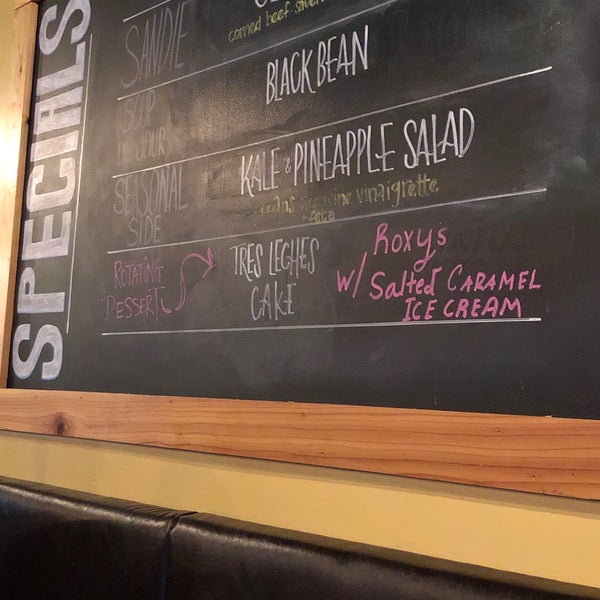 SPECIALS
SANDIE
corned beef
SOUP
DU JOUR
BLACK BEAN
SEASONAL
SIDE
KALE & PINEAPPLE SALAD
vinaigrette
feta
ROTATING
DESSERT
TRES LECHES
CAKE
Roxy's
w/ Salted CARAMEL
ICE CREAM